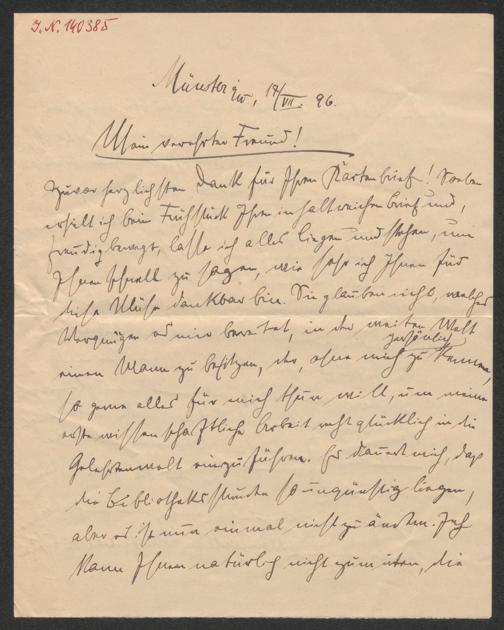 J. N. 140385
Münster i/W, 17/VII. 96.
Mein verehrter Freund!
Zuvor herzlichsten Dank für Ihren Kartenbrief! Soeben
erhielt ich beim Frühstück Ihren inhaltreichen Brief und,
freudig bewegt, lasse ich alles liegen und stehen, um
Ihnen schnell zu sagen, wie sehr ich Ihnen für
diese Mühe dankbar bin. Sie glauben nicht, welches
Vergnügen es mir bereitet, in der weiten Welt
einen Mann zu besitzen, der, ohne mich persönlich zu kennen,
so gerne alles für mich thun will, um meine
erste wissenschaftliche Arbeit recht glücklich in die
Gelehrtenwelt einzuführen. Es dauert mich, daß
die Bibliotheksstunden so ungünstig liegen,
aber es ist nun einmal nicht zu ändern. Ich
kann Ihnen natürlich nicht zumuten, die